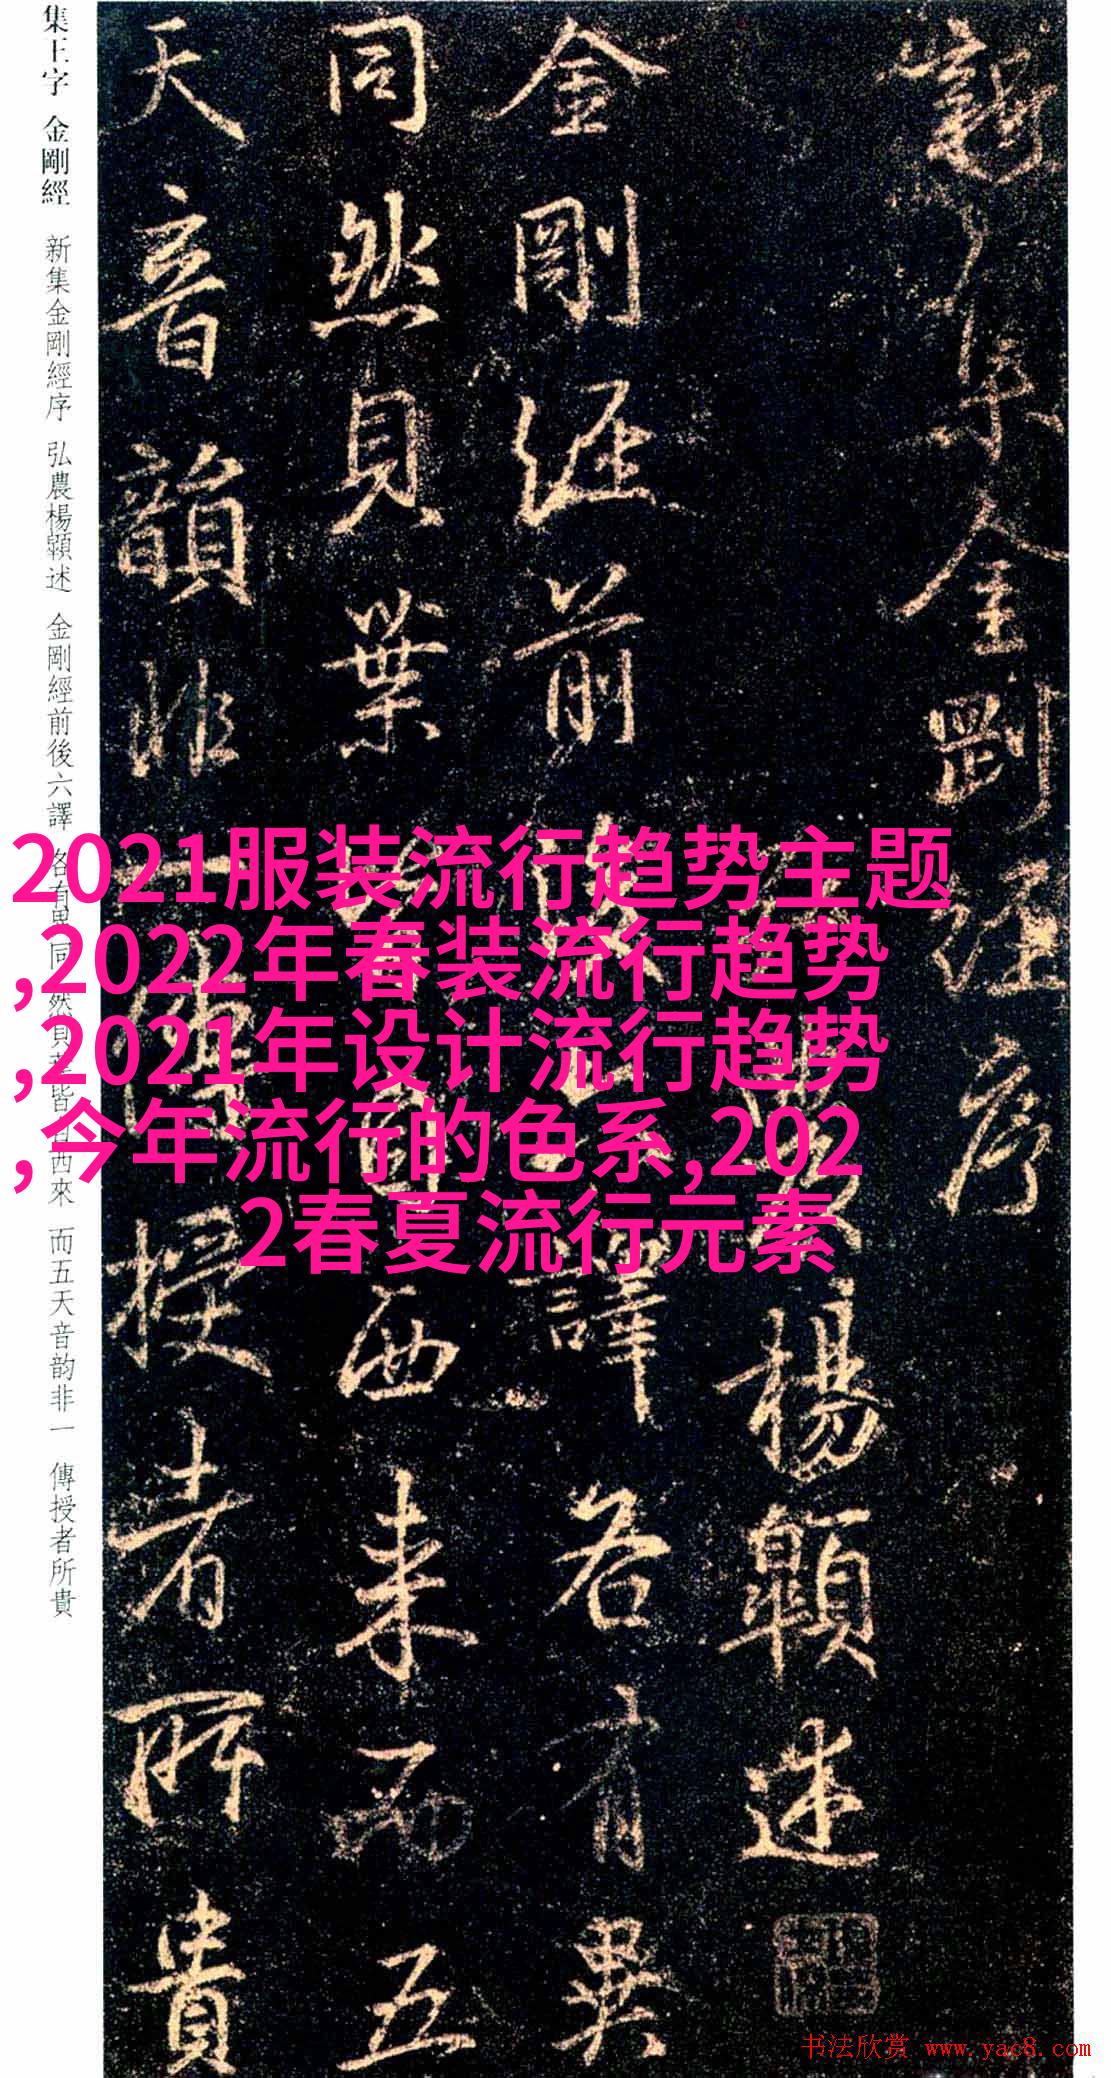 新集金剛經序
楊顒述
金剛經前
譯各有異
同然貝葉
西来而五
天音韻非一
授者所貴
集王字 金剛經 新集金剛經序 弘農楊顒述 金剛經前後六譯 各有異同 然貝葉皆自西來 而五天音韵非一 傳授者所貴
2021服装流行趋势主题
,2022年春装流行趋势
,2021年设计流行趋势
,今年流行的色系,202
2春夏流行元素
书法欣赏 www.yac8.com